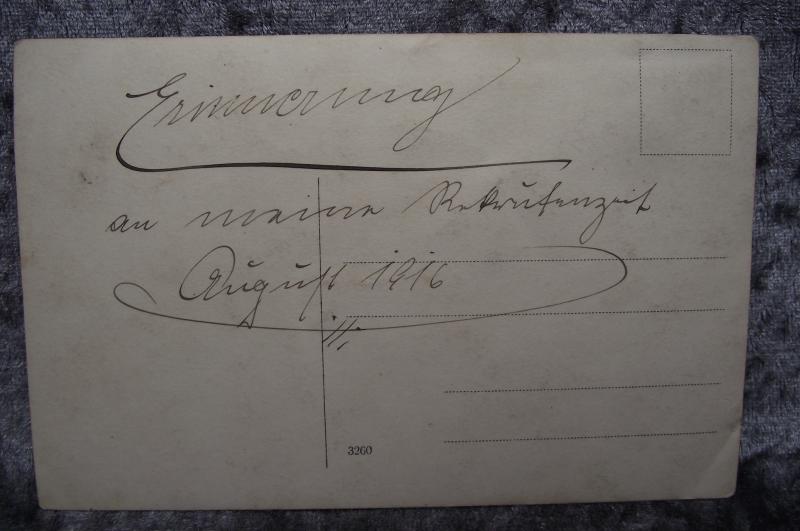 Erinnerung
an meine Rekrutenzeit
August 1916
3260